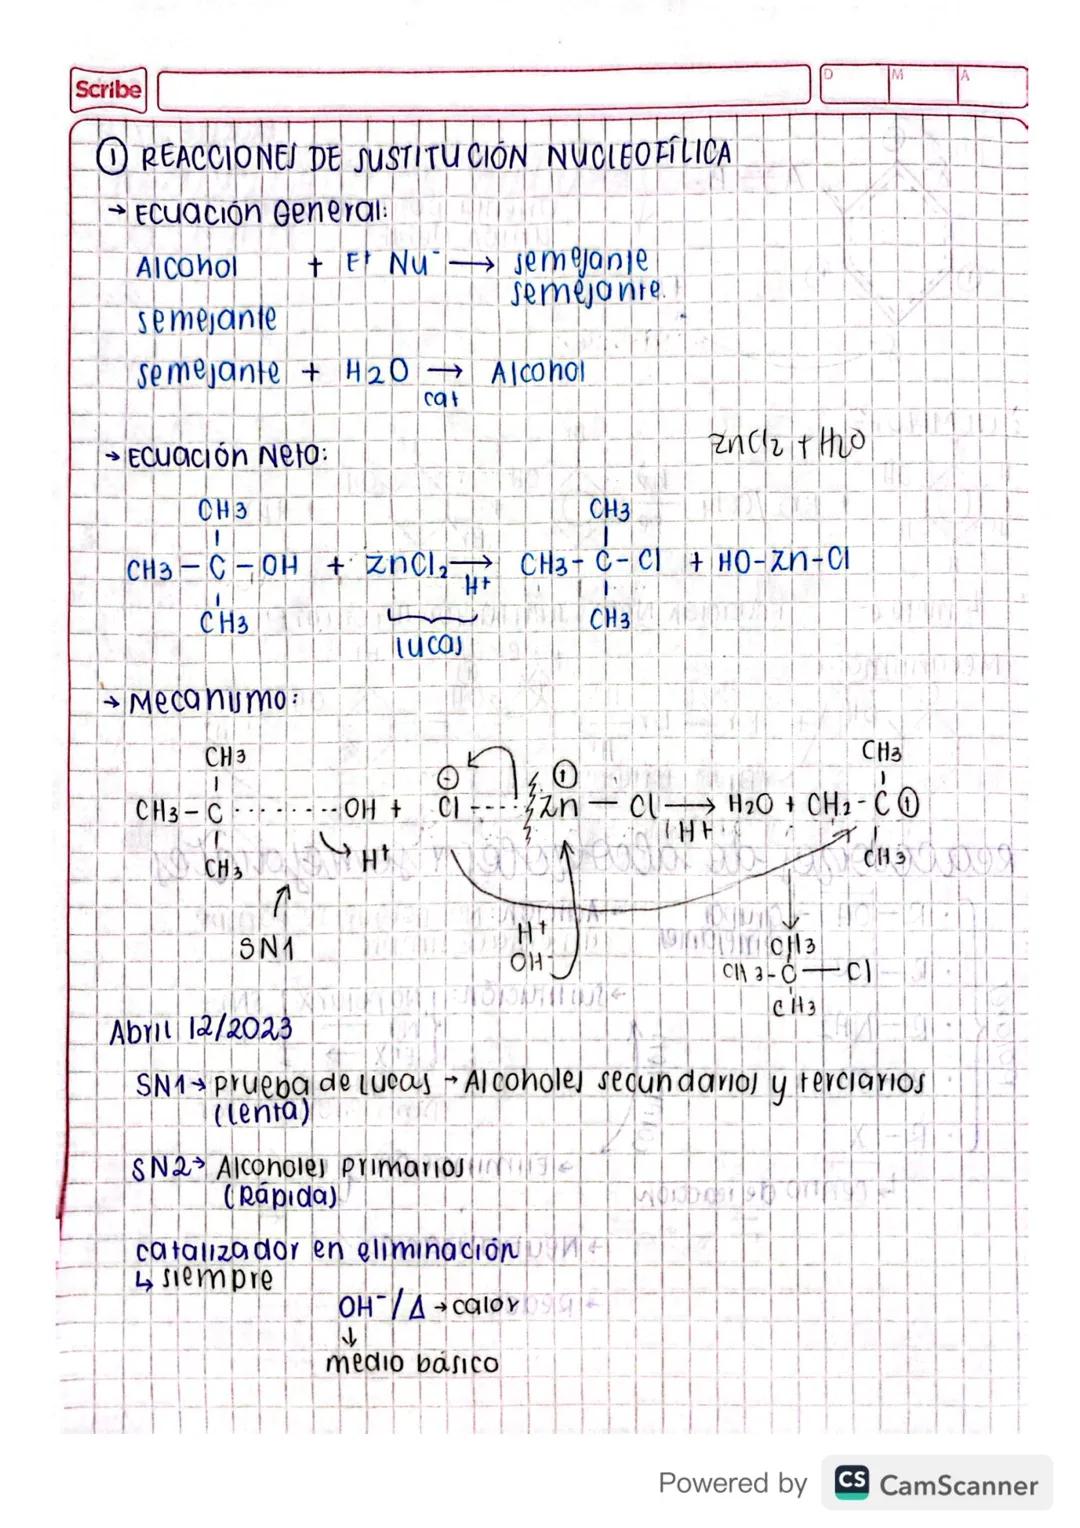 Scribe
D M A
① REACCIONES DE SUSTITUCIÓN NUCLEOFÍLICA
→ Ecuación General:
Alcohol + E+ Nu⁻ → semejante
semejante.
semejante
semejante + H2O → Alcohol
cat
ZnCl2 + H2O
→ Ecuación Neto:
CH3 CH3
CH3 – C – OH + ZnCl2 → CH3 - C - Cl + HO-Zn-Cl
H+
CH3 CH3
lucas
→ Mecanismo:
CH3 CH3
CH3 – C ········ OH + Cl ---- Zn — Cl → H2O + CH2 - C
H+
CH3 H+ CH3
SN1 H+
OH⁻
CH3
CH3-C — Cl
CH3
Abril 12/2023
SN1 → prueba de lucas → Alcoholes secundarios y terciarios
(lenta)
SN2 → Alcoholes primarios
(Rápida)
catalizador en eliminación
↳ siempre
OH⁻/Δ → calor
↓
medio básico
Powered by CS CamScanner